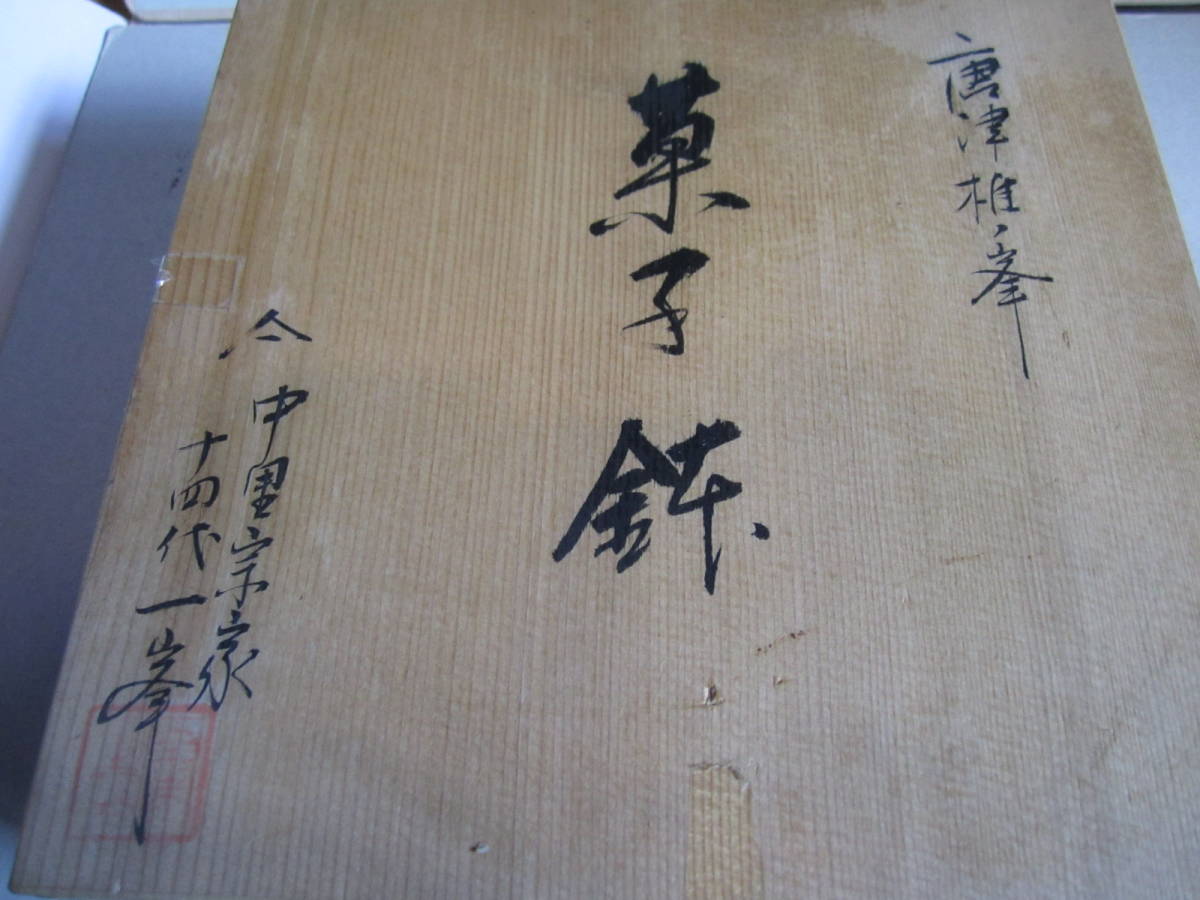 唐津椎ノ峯
菓子鉢
中里宗家
十四代一峯